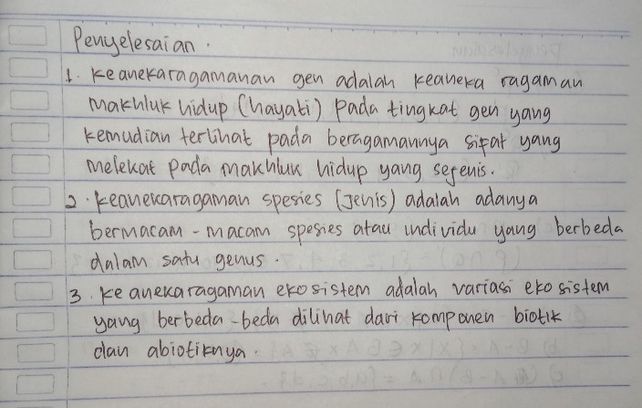 Penyelesaian.
1. Keanekaragamanan gen adalah keaneka ragaman
makhluk hidup (hayati) pada tingkat gen yang
kemudian terlihat pada beragamannya sifat yang
melekat pada makhluk hidup yang sejenis.
2. Keanekaragaman spesies (Jenis) adalah adanya
bermacam-macam spesies atau individu yang berbeda
dalam satu genus.
3. Ke anekaragaman ekosistem adalah variasi eko sistem
yang berbeda-beda dilihat dari komponen biotik
dan abiotiknya.